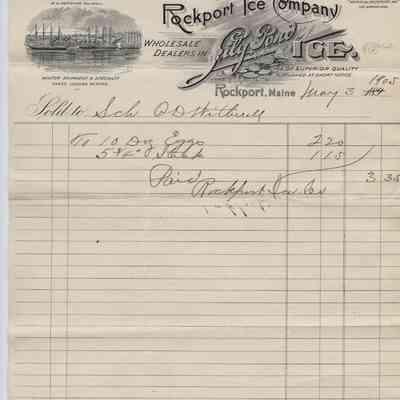 Rockport Ice Company
WHOLESALE
DEALERS IN
Lily Pond ICE.
OF SUPERIOR QUALITY
AT SHORT NOTICE
WINTER SHIPMENT A SPECIALTY
Rockport, Maine May 3 1905
Sold to Sch O D Witherell
To 10 Doz Eggs 2 20
1 15
Paid 3 35
Rockport Ice Co